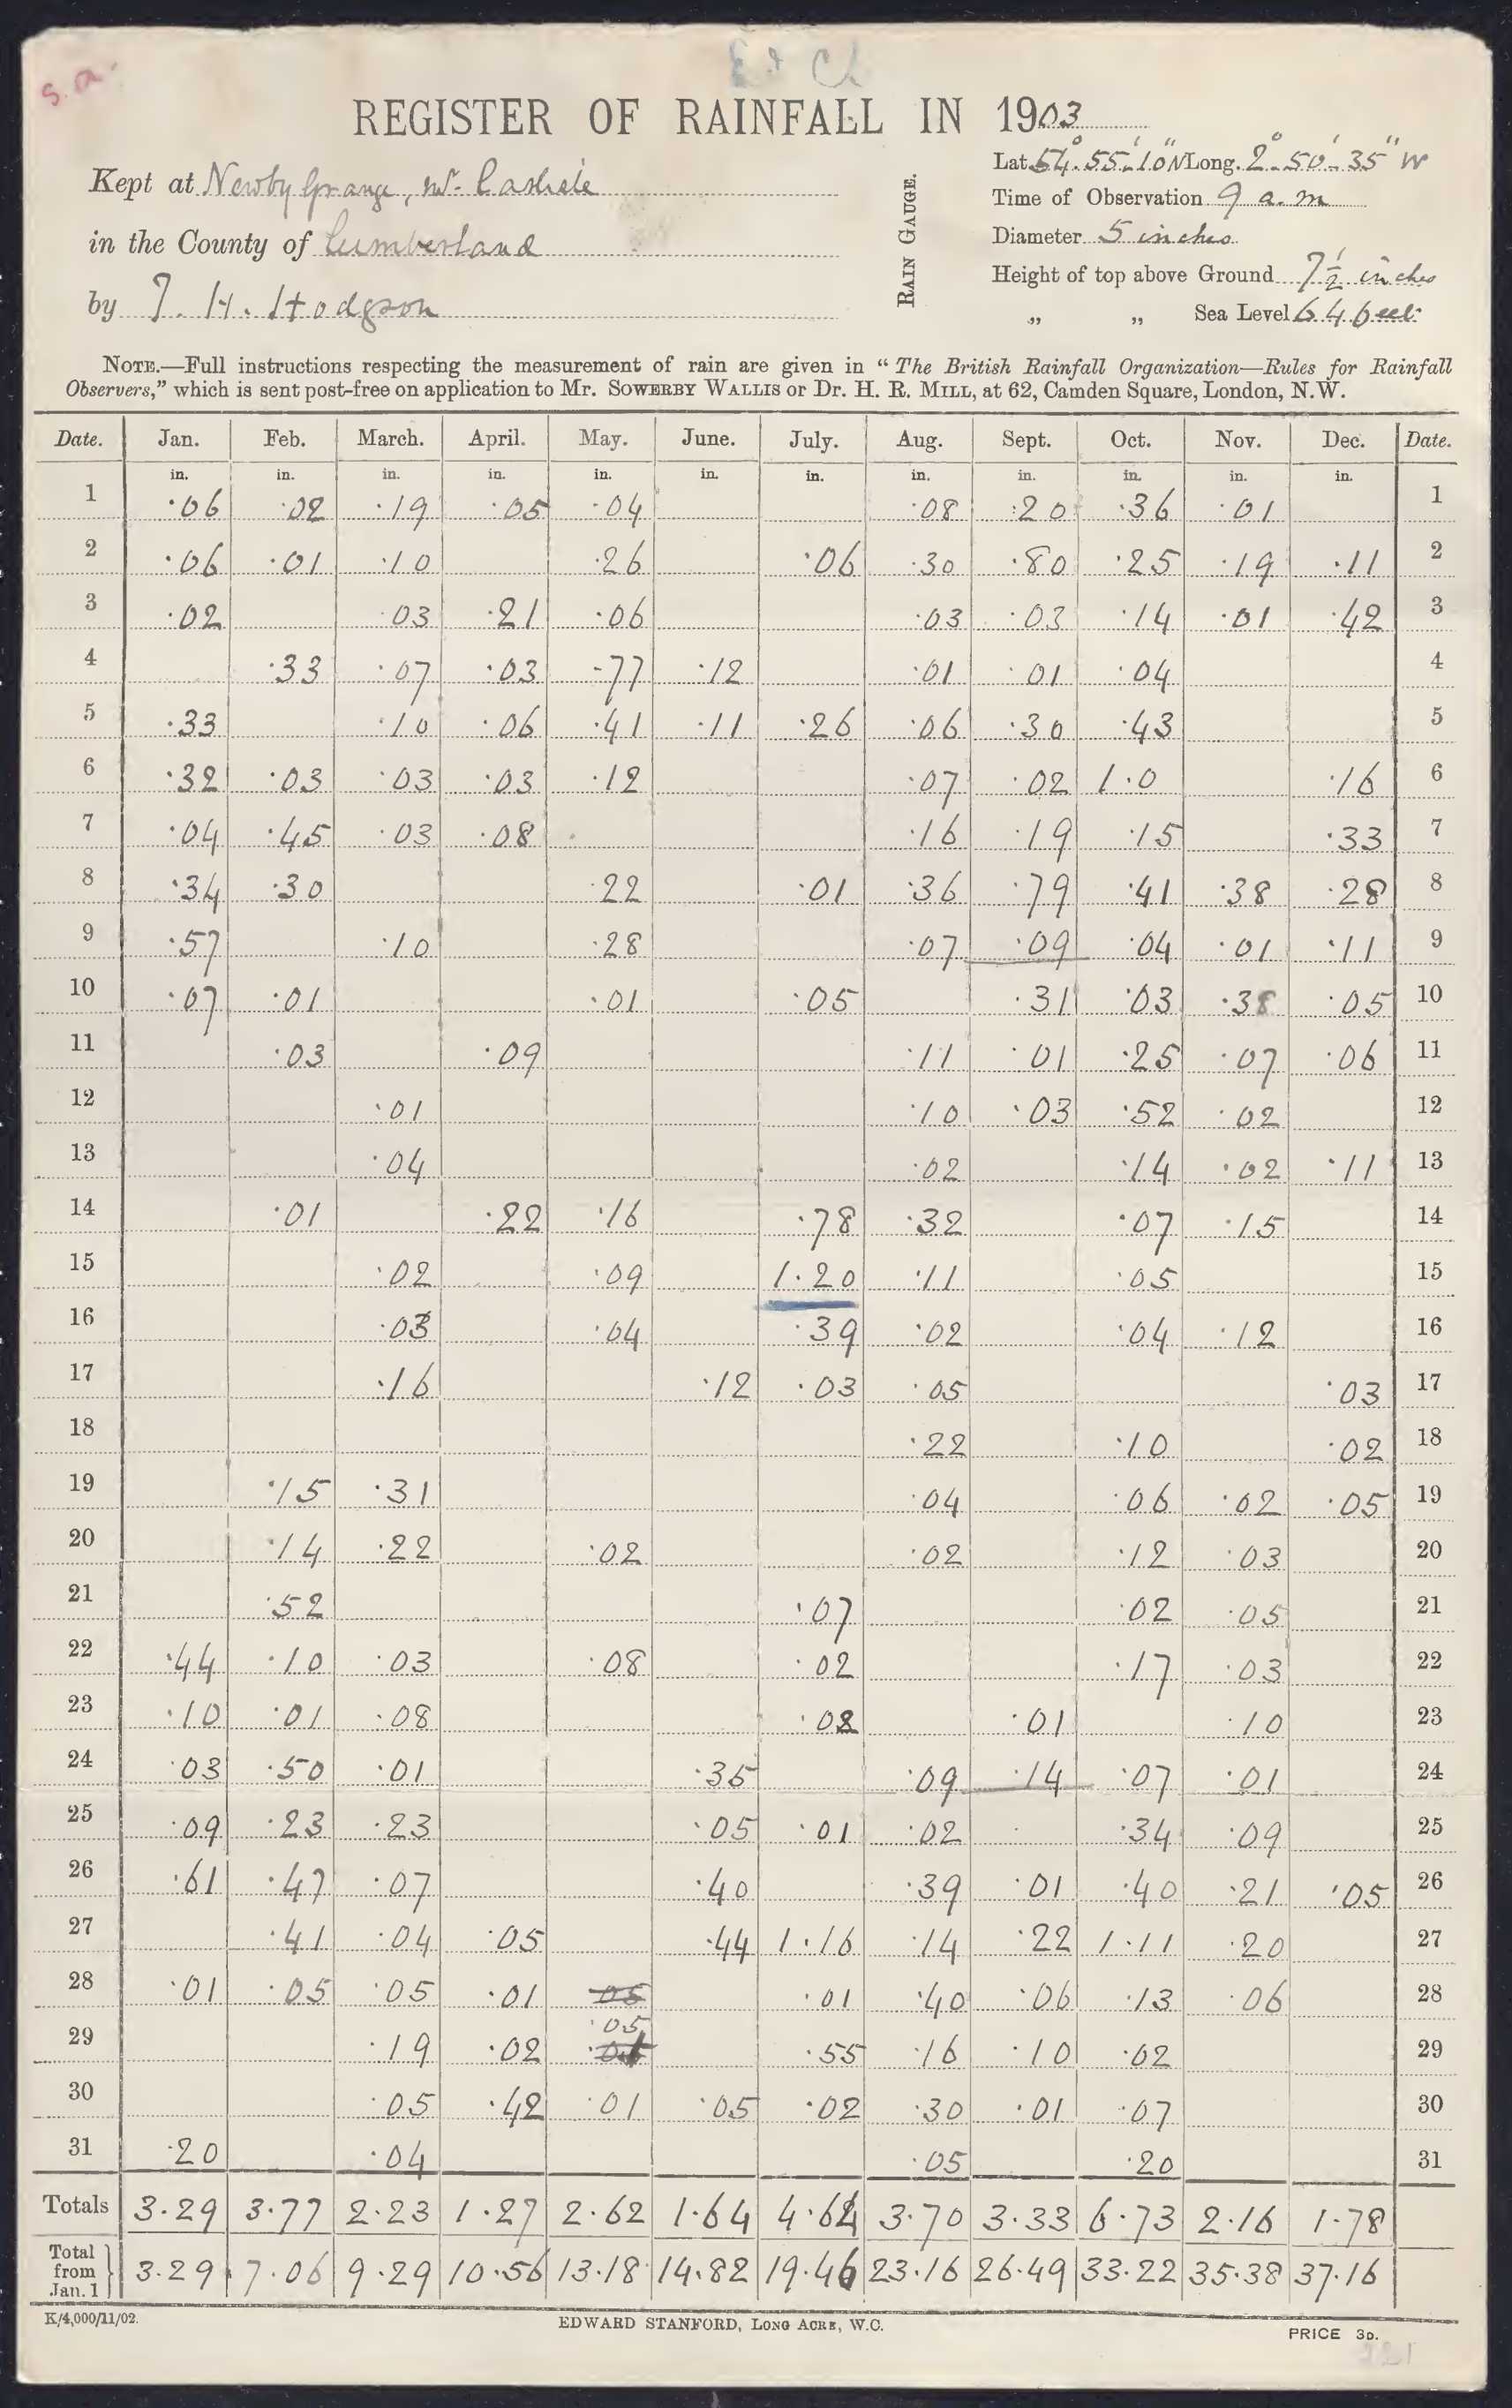 S.a.
REGISTER OF RAINFALL IN 1903
Kept at Newby Grange, Nr. Carlisle
in the County of Cumberland
by T. H. Hodgson
RAIN GAUGE.
Lat. 54° 55' 10" N Long. 2° 50' 35" W
Time of Observation 9 a.m
Diameter 5 inches
Height of top above Ground 7½ inches
„ „ Sea Level 64 feet
NOTE.—Full instructions respecting the measurement of rain are given in “The British Rainfall Organization—Rules for Rainfall
Observers,” which is sent post-free on application to Mr. SOWERBY WALLIS or Dr. H. R. MILL, at 62, Camden Square, London, N.W.
Date. Jan. Feb. March. April. May. June. July. Aug. Sept. Oct. Nov. Dec. Date.
in. in. in. in. in. in. in. in. in. in. in. in.
1 ·06 ·02 ·19 ·05 ·04 ·08 ·20 ·36 ·01 1
2 ·06 ·01 ·10 ·26 ·06 ·30 ·80 ·25 ·19 ·11 2
3 ·02 ·03 ·21 ·06 ·03 ·03 ·14 ·01 ·42 3
4 ·33 ·07 ·03 ·77 ·12 ·01 ·01 ·04 4
5 ·33 ·10 ·06 ·41 ·11 ·26 ·06 ·30 ·43 5
6 ·32 ·03 ·03 ·03 ·12 ·07 ·02 1·0 ·16 6
7 ·04 ·45 ·03 ·08 ·16 ·19 ·15 ·33 7
8 ·34 ·30 ·22 ·01 ·36 ·79 ·41 ·38 ·28 8
9 ·57 ·10 ·28 ·07 ·09 ·04 ·01 ·11 9
10 ·07 ·01 ·01 ·05 ·31 ·03 ·38 ·05 10
11 ·03 ·09 ·11 ·01 ·25 ·07 ·06 11
12 ·01 ·10 ·03 ·52 ·02 12
13 ·04 ·02 ·14 ·02 ·11 13
14 ·01 ·22 ·16 ·78 ·32 ·07 ·15 14
15 ·02 ·09 1·20 ·11 ·05 15
16 ·03 ·04 ·39 ·02 ·04 ·12 16
17 ·16 ·12 ·03 ·05 ·03 17
18 ·22 ·10 ·02 18
19 ·15 ·31 ·04 ·06 ·02 ·05 19
20 ·14 ·22 ·02 ·02 ·12 ·03 20
21 ·52 ·07 ·02 ·05 21
22 ·44 ·10 ·03 ·08 ·02 ·17 ·03 22
23 ·10 ·01 ·08 ·02 ·01 ·10 23
24 ·03 ·50 ·01 ·35 ·09 ·14 ·07 ·01 24
25 ·09 ·23 ·23 ·05 ·01 ·02 ·34 ·09 25
26 ·61 ·47 ·07 ·40 ·39 ·01 ·40 ·21 ·05 26
27 ·41 ·04 ·05 ·44 1·16 ·14 ·22 1·11 ·20 27
28 ·01 ·05 ·05 ·01 05 ·01 ·40 ·06 ·13 ·06 28
29 ·19 ·02 ·05 ·55 ·16 ·10 ·02 29
30 ·05 ·42 ·01 ·05 ·02 ·30 ·01 ·07 30
31 ·20 ·04 ·05 ·20 31
Totals 3·29 3·77 2·23 1·27 2·62 1·64 4·64 3·70 3·33 6·73 2·16 1·78
Total from Jan. 1 3·29 7·06 9·29 10·56 13·18 14·82 19·46 23·16 26·49 33·22 35·38 37·16
K/4,000/11/02.
EDWARD STANFORD, LONG ACRE, W.C.
PRICE 3D.